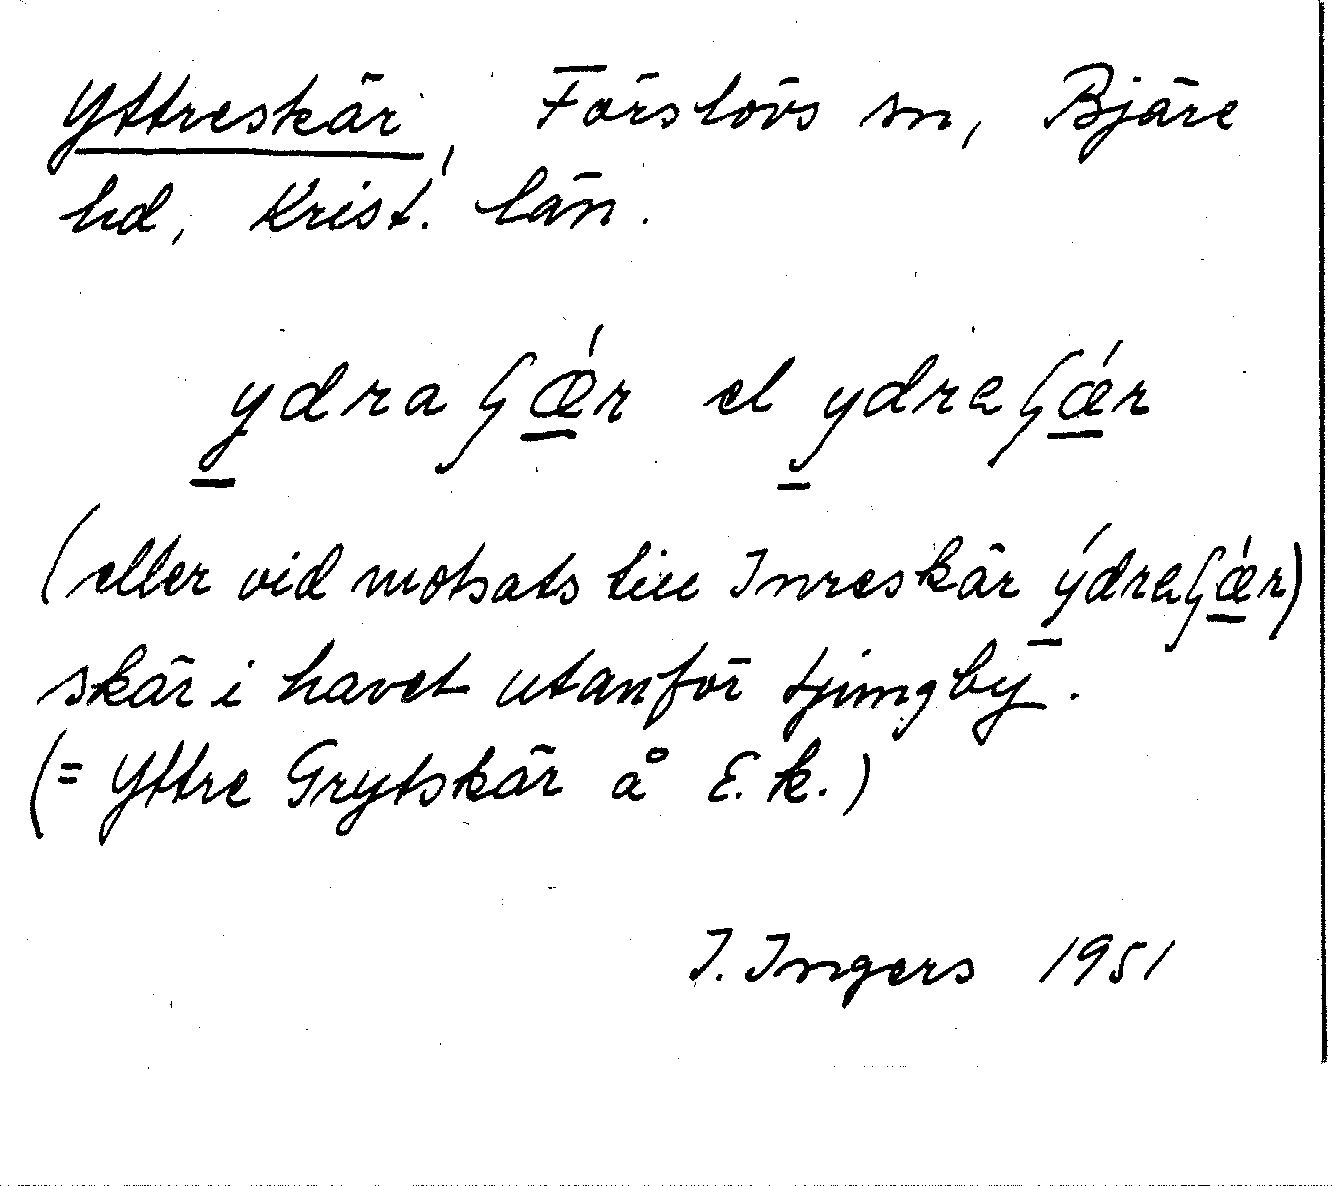 Yttreskär, Förslövs sn, Bjäre
hd, Krist. län.
ydraʃǽr el ydreʃǽr
(eller vid motsats till Inreskär ýdreʃǽr)
skär i havet utanför Ljungby.
(= Yttre Grytskär å E.k.)
I. Ingers 1951